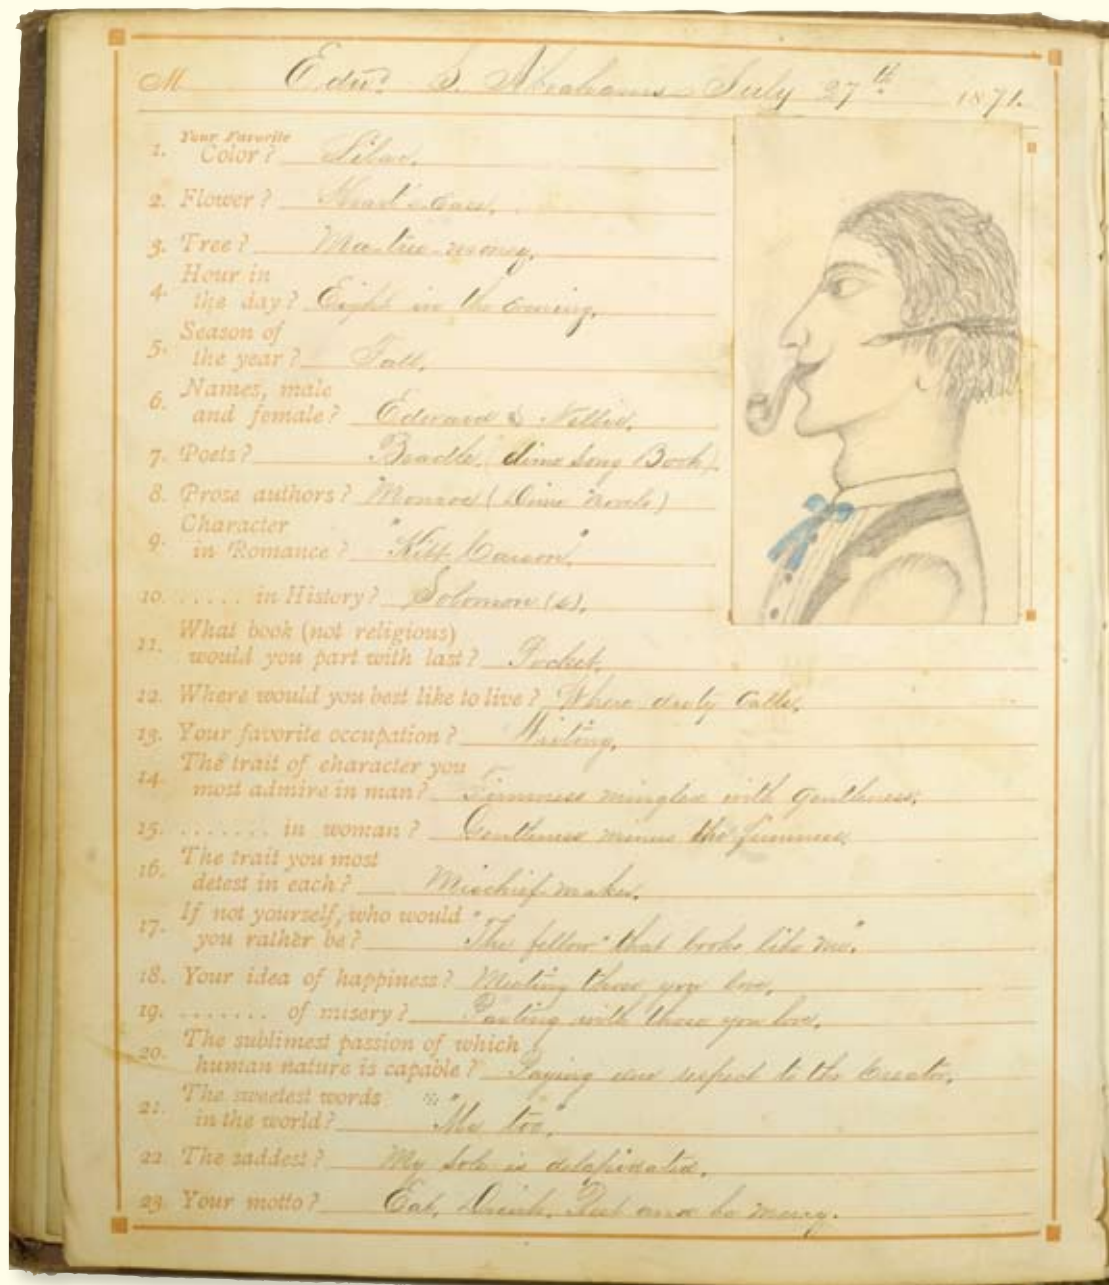 M Edwd. S. Abrahams July 27th 1871.
1. Your Favorite Color? Lilac.
2. Flower? Heart's-ease.
3. Tree? money.
4. Hour in the day? Eight in the evening.
5. Season of the year? Fall.
6. Names, male and female? Edward & Nellie.
7. Poets? Beadle (dime Song Book)
8. Prose authors? Monroe (Dime Novels)
9. Character in Romance? "Kitt Carson".
10. ...... in History? Solomon (s).
11. What book (not religious) would you part with last? Pocket.
12. Where would you best like to live? Where duty Calls.
13. Your favorite occupation? Writing.
14. The trait of character you most admire in man? Firmness mingled with gentleness.
15. ........ in woman? Gentleness minus the firmness.
16. The trait you most detest in each? Mischief-maker.
17. If not yourself, who would you rather be? "The fellow" that looks like me".
18. Your idea of happiness? Meeting those you love.
19. ........ of misery? Parting with those you love.
20. The sublimest passion of which human nature is capable? Paying due respect to the Creator.
21. The sweetest words in the world? "Me too."
22. The saddest? My sole is delapidated.
23. Your motto? Eat, Drink, Rest and be merry.